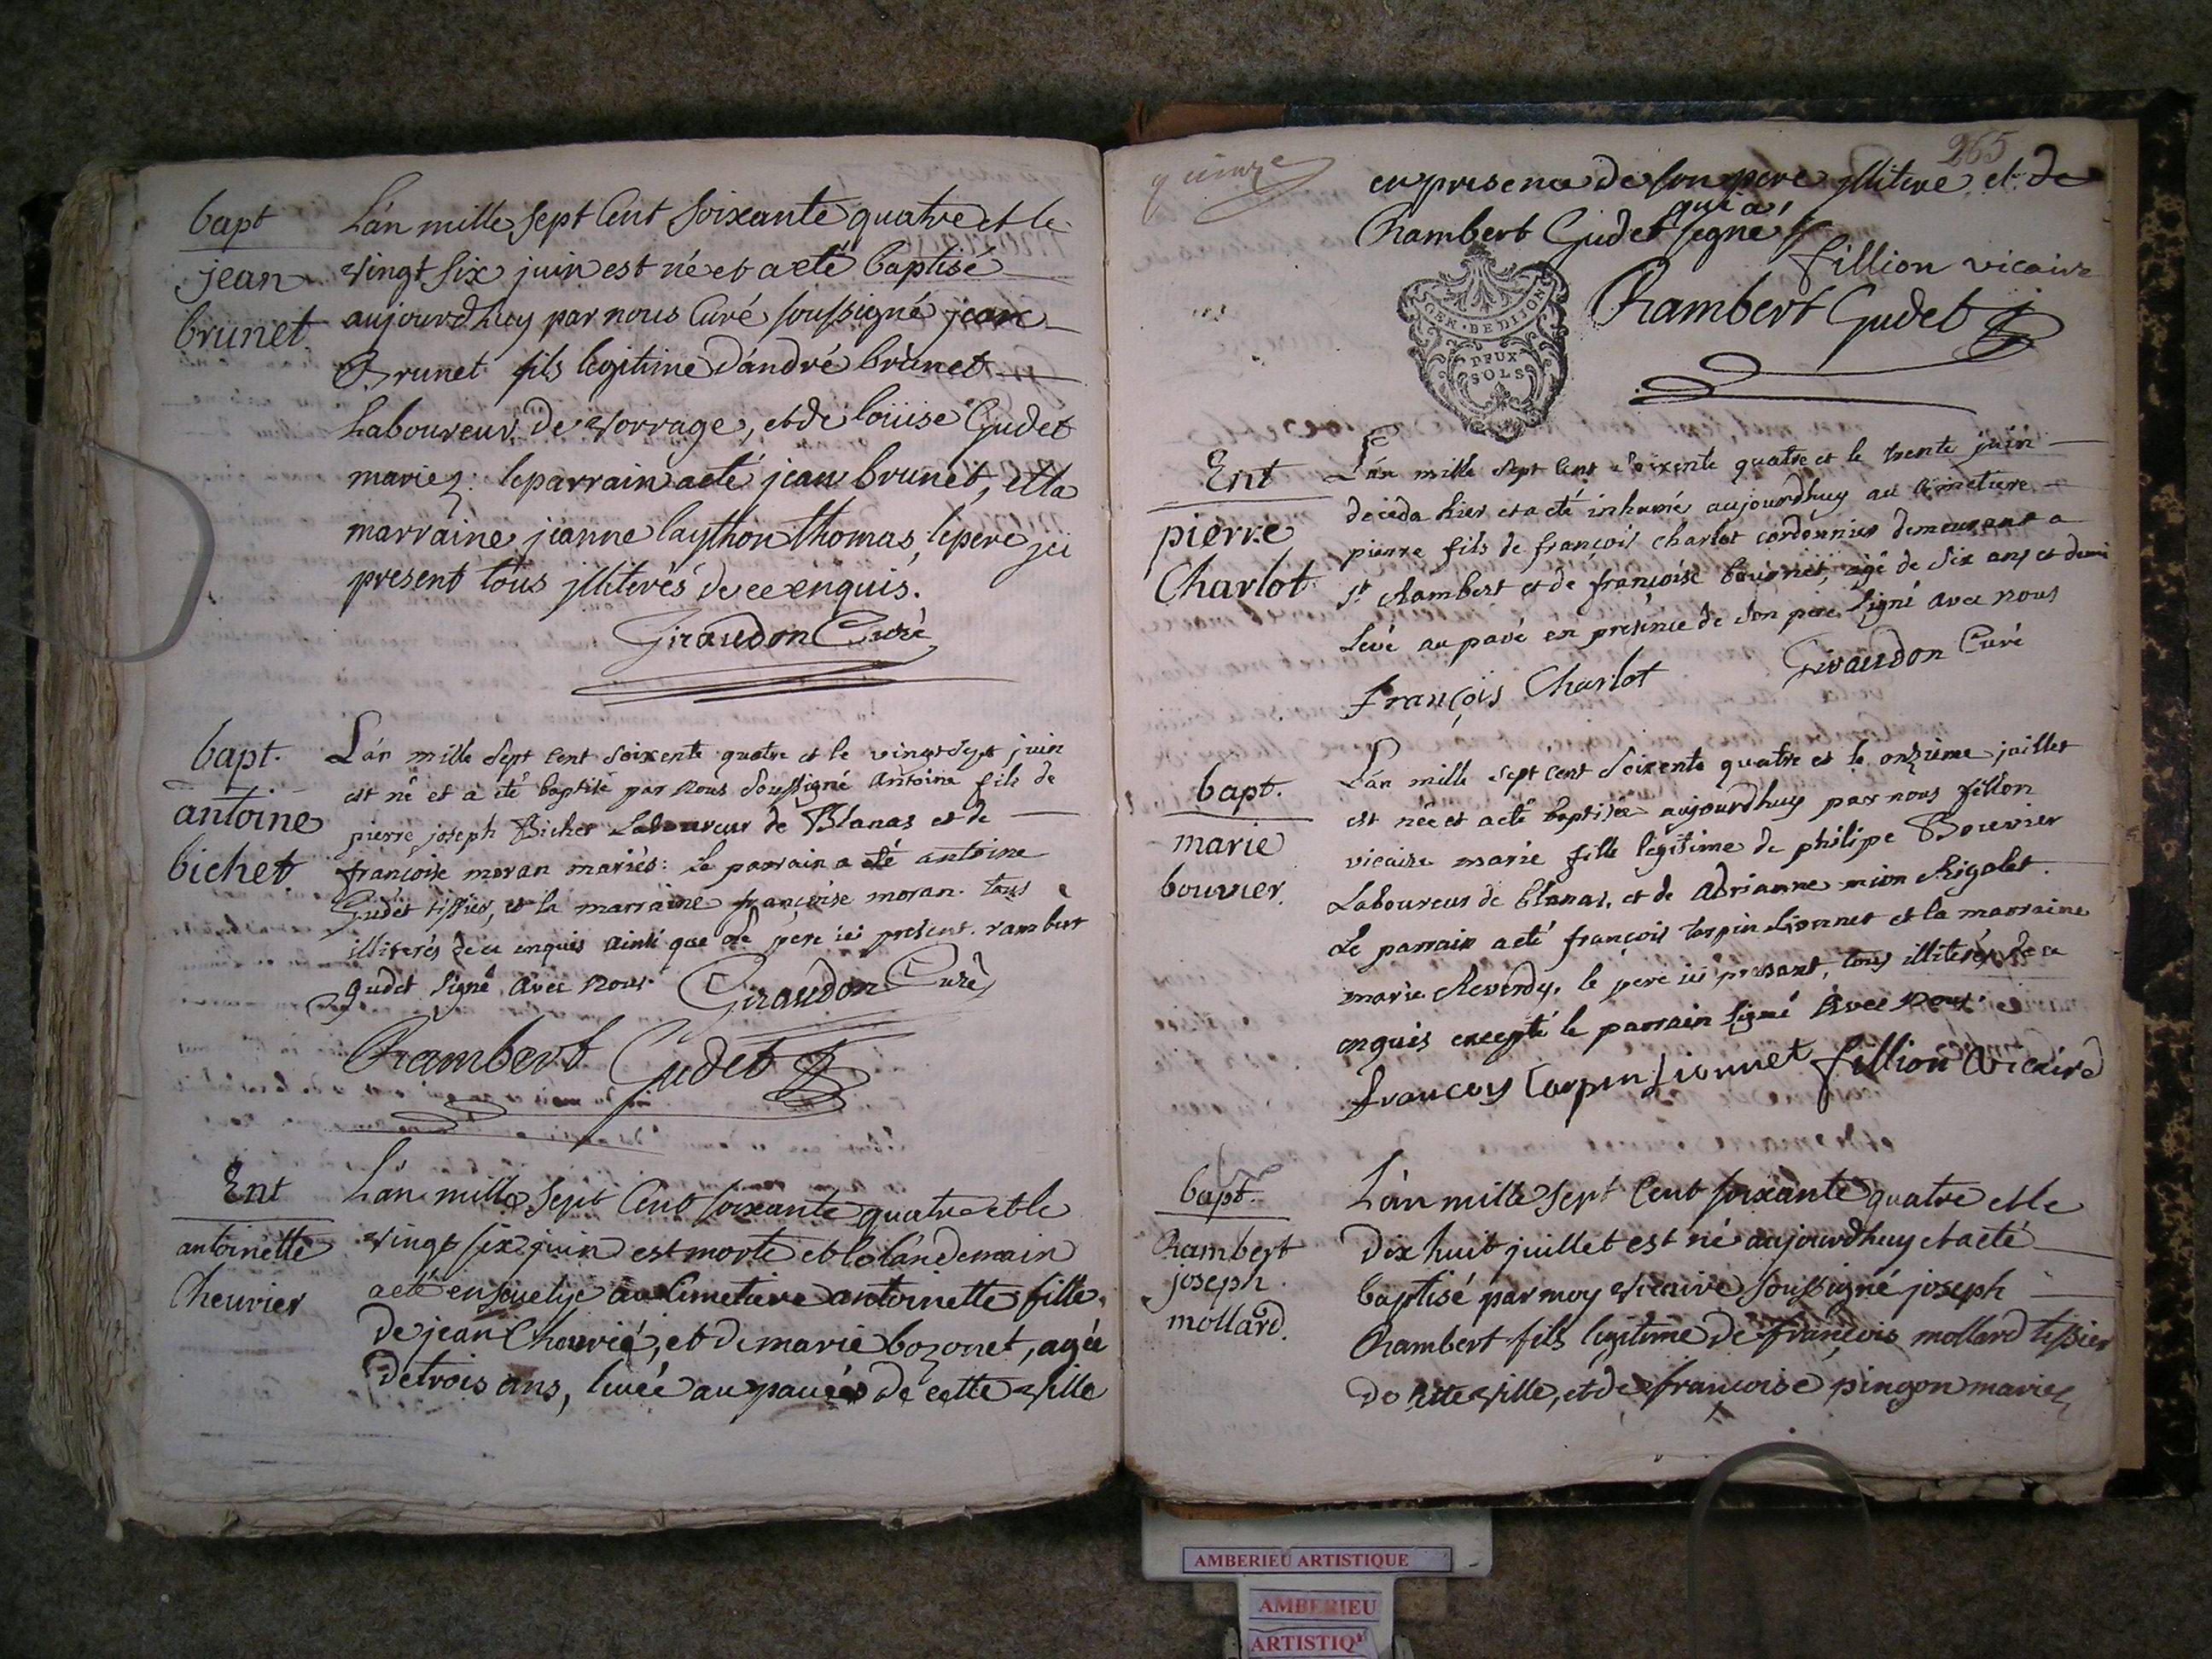 bapt
jean
brunet
L'an mille sept Cent soixante quatre et le
vingt six juin est né et a eté baptisé
aujourdhuy par nous Curé soussigné jean
Brunet fils legitime d'andré brunet
Laboureur de vorrage, et de loüise Gudet
mariez. le parrain a eté jean brunet, et la
marraine jeanne laython thomas, le pere jci
present tous jlliterés de ce enquis.
Giraudon Curé
bapt.
antoine
bichet
L'an mille sept cent soixente quatre et le vingt sept juin
est né et a eté baptisé par nous soussigné antoine fils de
pierre joseph Bichet Laboureur de Blanas et de
françoise moran mariés: Le parrain a eté antoine
Gudet tissier, et la marraine françoise moran. tous
illiterés de ce enquis ainsi que le pere ici present. rambert
gudet signé avec nous. Giraudon Curé
Rambert Gudet
Ent
antoinette
Cheurier
L'an mille sept Cent soixante quatre et le
vingt six juin est morte et le landemain
a eté ensevelye au Cimetiere antoinette fille
de jean Cheurié, et de marie bozonet, agée
de trois ans, levée au pavés de cette ville
quinze
265
en presence de son pere jllitere et de
Rambert Gudet qui a signé
fillion vicaire
Rambert Gudet
GEN. BE DIJON
DEUX
SOLS
Ent
pierre
Charlot
L'an mille sept cent soixente quatre et le trente juin
deceda hier et a eté inhumé aujourdhuy au cimetiere
pierre fils de françois charlot cordonnier demeurant a
St Rambert et de françoise bournet, agé de six ans et demi
Levé au pavé en presence de son pere signé avec nous
françois Charlot Giraudon Curé
bapt.
marie
bouvier.
L'an mille sept cent soixente quatre et le onzième juillet
est née et a eté baptisée aujourdhuy par nous fillon
vicaire marie fille legitime de philipe Bouvier
Laboureur de blanas, et de Adrianne mion Rigolet.
Le parrain a eté françois tarpin Lionnet et la marraine
marie Reverdy, le pere ici present, tous illiterés de ce
enquis excepté le parrain signé avec nous.
francoys tarpin Lionnet fillion vicaire
bapt.
Rambert
joseph
mollard.
L'an mille sept Cent soixante quatre et le
dix huit juillet est né aujourdhuy et a eté
baptisé par moy vicaire soussigné joseph
Rambert fils legitime de françois mollard tissier
de cette ville, et de françoise pingon mariez
AMBERIEU ARTISTIQUE
AMBERIEU
ARTISTIQ